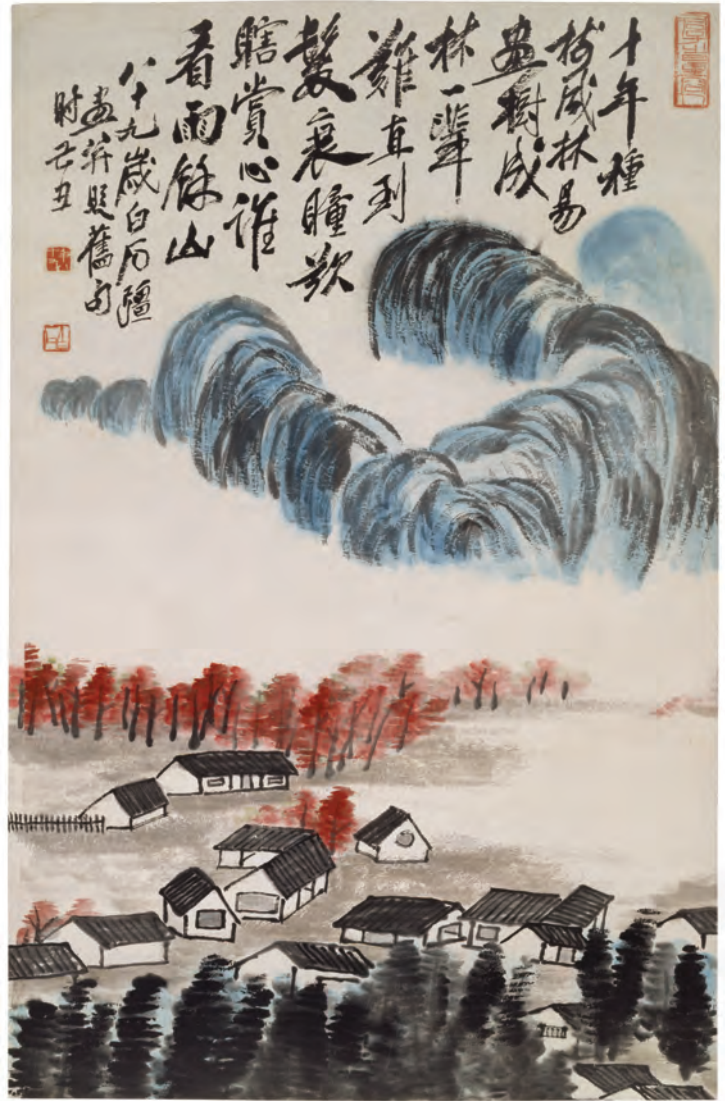 十年種
樹成林易
畫樹成
林一輩
難直到
髮衰瞳欲
瞎賞心誰
看雨餘山
八十九歲白石
畫并題舊句
时己丑